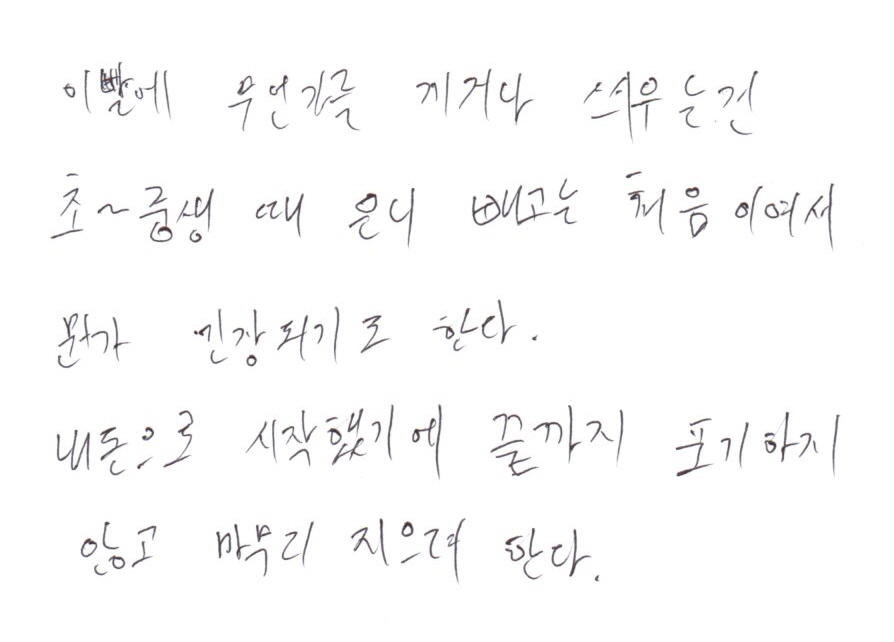 이빨에 무언가를 끼거나 씌우는건
초~중생 때 은니 빼고는 처음이여서
뭔가 긴장되기도 한다.
내돈으로 시작했기에 끝까지 포기하지
않고 마무리 지으려 한다.